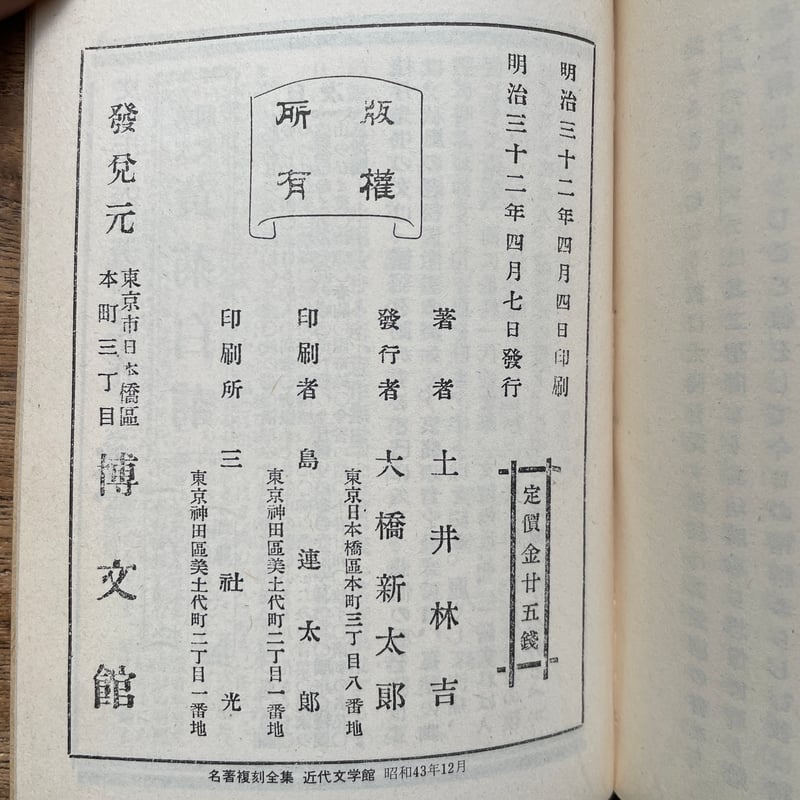 明治三十二年四月四日印刷
明治三十二年四月七日發行
定價金廿五錢
版權
所有
著者 土井林吉
發行者 大橋新太郎
東京日本橋區本町三丁目八番地
印刷者 島連太郎
東京神田區美土代町二丁目一番地
印刷所 三社光
東京神田區美土代町二丁目一番地
發兌元
東京市日本橋區
本町三丁目
博文館
名著複刻全集 近代文学館 昭和43年12月